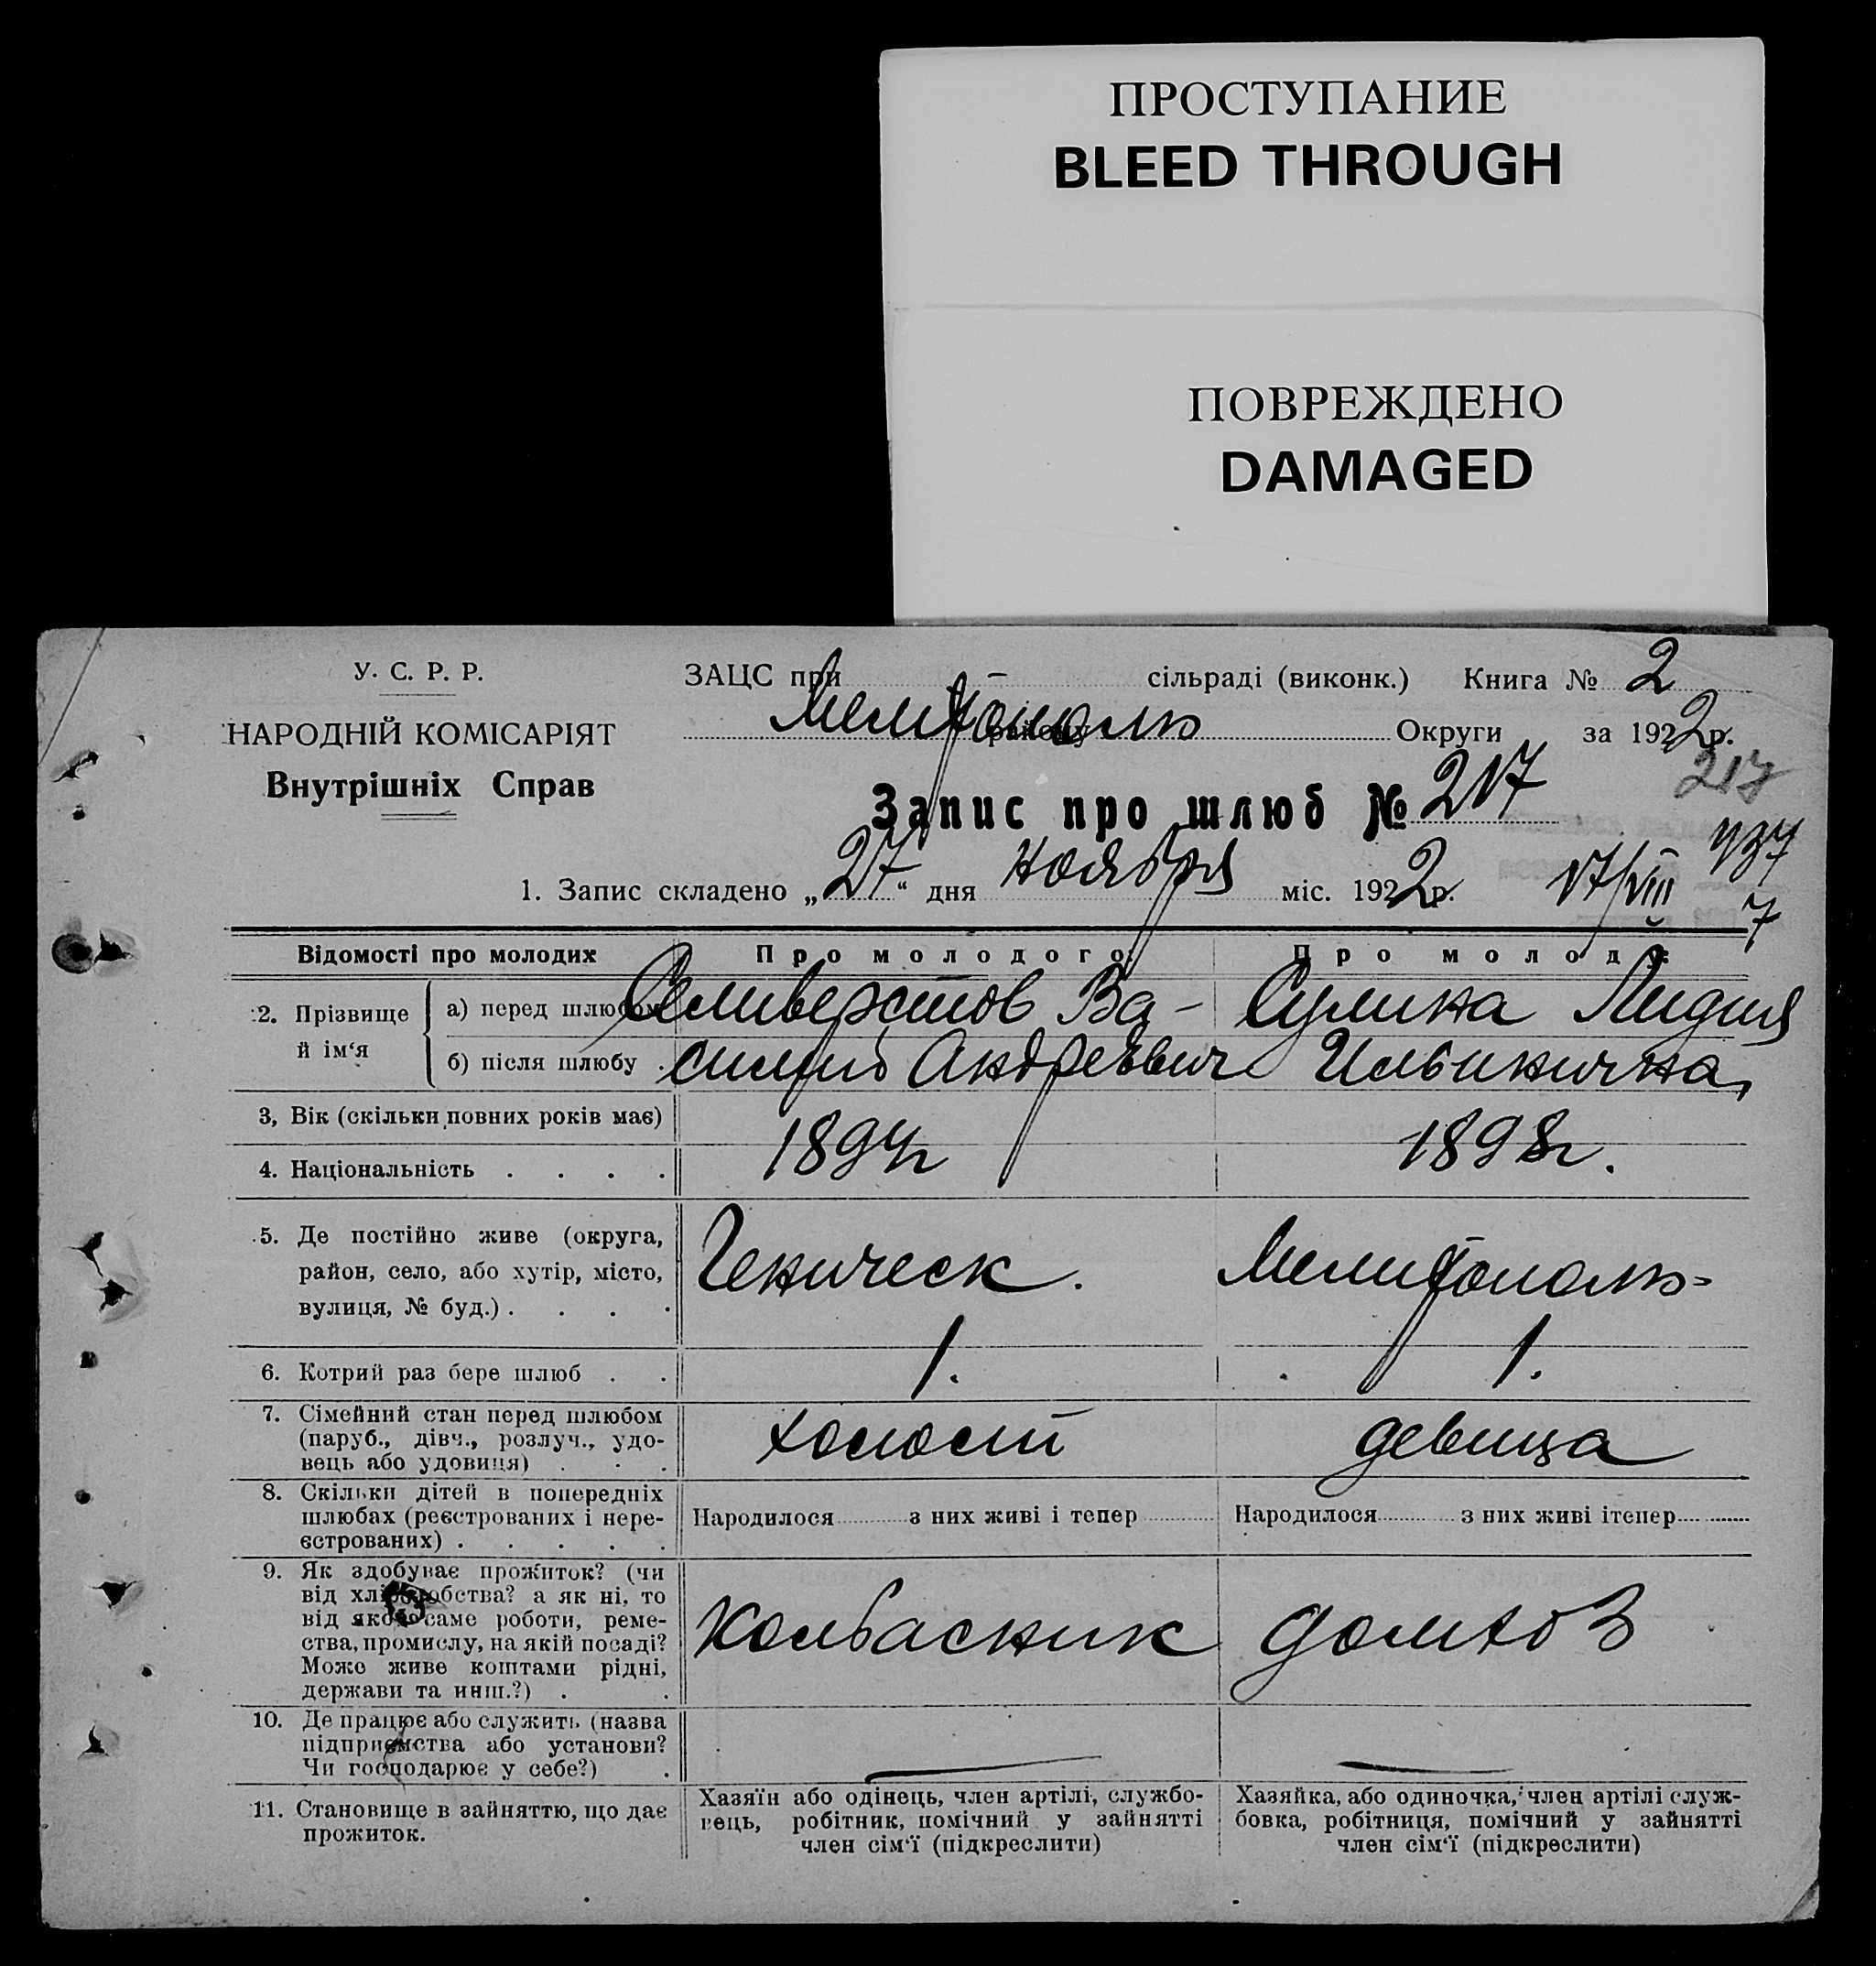 ПРОСТУПАНИЕ
BLEED THROUGH
ПОВРЕЖДЕНО
DAMAGED
У. С. Р. Р.
НАРОДНІЙ КОМІСАРІЯТ
Внутрішніх Справ
ЗАЦС при сільраді (виконк.) Книга № 2
Мелитополь району Округи за 1922 р.
217
Запис про шлюб № 217
1. Запис складено „27“ дня ноября міс. 1922 р. 17/VIII 937
7
Відомості про молодих Про молодого: Про молоду:
2. Прізвище й ім‘я
а) перед шлюбом Селиверстов Ва- Сулина Лидия
б) після шлюбу . силий Андреевич Ильинична,
3, Вік (скільки повних років має)
1894г 1898г.
4. Національність . . . .
5. Де постійно живе (округа,
район, село, або хутір, місто,
вулиця, № буд.) . . . .
Геническ. Мелитополь-
6. Котрий раз бере шлюб . . 1. 1.
7. Сімейний стан перед шлюбом
(паруб., дівч., розлуч., удо-
вець або удовиця) . . .
холост девица
8. Скільки дітей в попередніх
шлюбах (реєстрованих і нере-
єстрованих) . . . . .
Народилося з них живі і тепер Народилося з них живі ітепер
9. Як здобуває прожиток? (чи
від хліборобства? а як ні, то
від якого саме роботи, реме-
ства, промислу, на якій посаді?
Може живе коштами рідні,
держави та инш.?) . .
колбасник домхоз
10. Де працює або служить (назва
підприємства або установи?
Чи господарює у себе?) .
11. Становище в зайняттю, що дає
прожиток.
Хазяїн або одінець, член артілі, службо-
вець, робітник, помічний у зайнятті
член сім‘ї (підкреслити)
Хазяйка, або одиночка, член артілі служ-
бовка, робітниця, помічний у зайнятті
член сім‘ї (підкреслити)